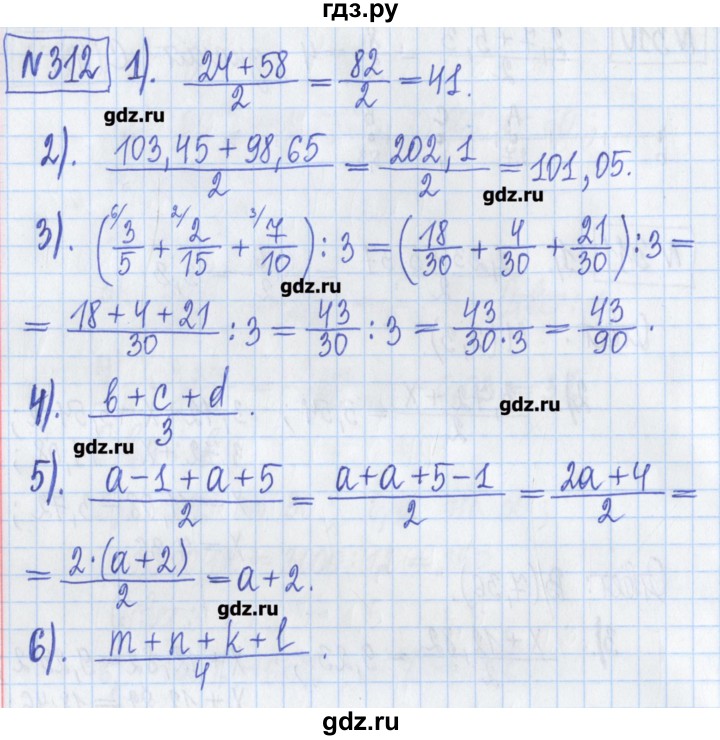 гдз.ру
№312 1). (24+58)/2 = 82/2 = 41.
gdz.ru
2). (103,45+98,65)/2 = 202,1/2 = 101,05.
gdz.ru
3). (6/ 3/5 + 2/ 2/15 + 3/ 7/10) : 3 = (18/30 + 4/30 + 21/30) : 3 =
gdz.ru
= (18+4+21)/30 : 3 = 43/30 : 3 = 43/(30·3) = 43/90.
4). (b+c+d)/3.
gdz.ru
gdz.ru
5). (a-1+a+5)/2 = (a+a+5-1)/2 = (2a+4)/2 =
= 2·(a+2)/2 = a+2.
gdz.ru
6). (m+n+k+l)/4.
gdz.ru
gdz.ru